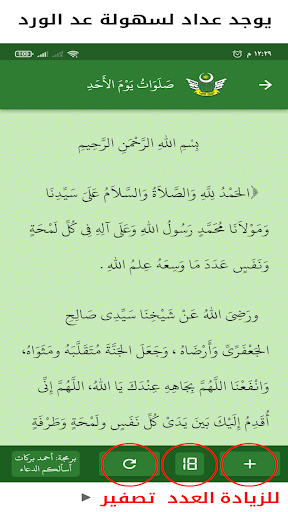 يوجد عداد لسهولة عد الورد
١٢:٢٩ م
100
صَلَوَاتُ يَوْمِ الأَحَدِ
بِسْمِ اللهِ الرَّحْمَنِ الرَّحِيمِ
﴿الحَمْدُ لِلَّهِ وَالصَّلَاةُ وَالسَّلَامُ عَلَى سَيِّدِنَا
وَمَوْلَانَا مُحَمَّدٍ رَسُولِ اللهِ وَعَلَى آلِهِ فِي كُلِّ لَمْحَةٍ
وَنَفَسٍ عَدَدَ مَا وَسِعَهُ عِلْمُ اللهِ .
وَرَضِيَ اللهُ عَنْ شَيْخِنَا سَيِّدِى صَالِحٍ
الجَعْفَرِيِّ وَأَرْضَاهُ ، وَجَعَلَ الجَنَّةَ مُتَقَلَّبَهُ وَمَثْوَاهُ،
وَانْفَعْنَا اللَّهُمَّ بِجَاهِهِ عِنْدَكَ يَا اللهُ، اللَّهُمَّ إِنِّى
أُقَدِّمُ إِلَيْكَ بَيْنَ يَدَىْ كُلِّ نَفَسٍ وَلَمْحَةٍ وَطَرْفَةٍ
برمجة: أحمد بركات
أسألكم الدعاء
18
+
للزيادة العدد تصفير